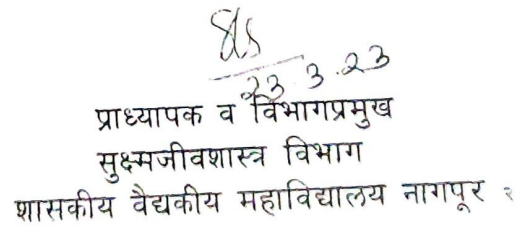 23.3.23
प्राध्यापक व विभागप्रमुख
सुक्ष्मजीवशास्त्र विभाग
शासकीय वैद्यकीय महाविद्यालय नागपूर